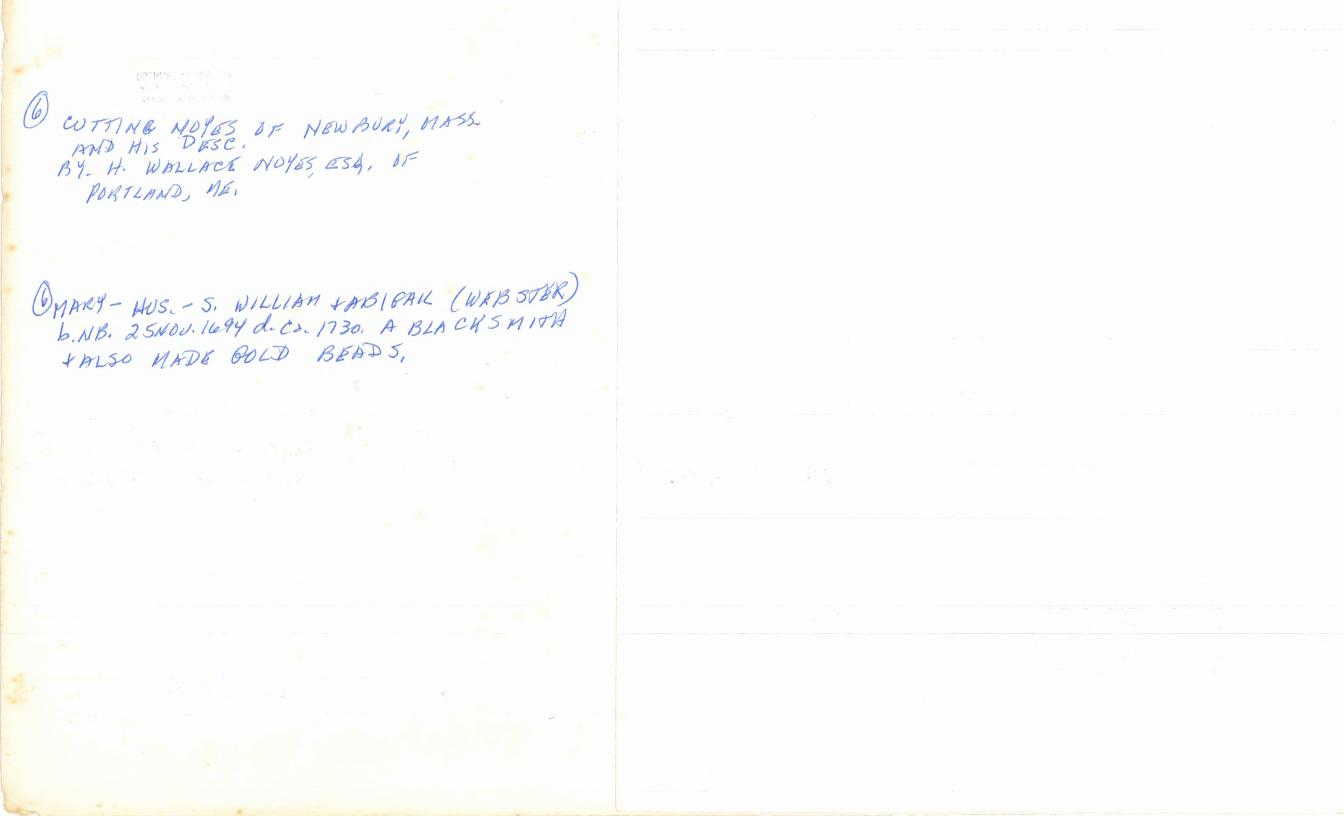 ⑥ CUTTING NOYES OF NEWBURY, MASS
AND HIS DESC.
BY. H. WALLACE NOYES, ESQ. OF
PORTLAND, ME.
⑥ MARY - HUS. - S. WILLIAM + ABIGAIL (WEBSTER)
b. NB. 25 NOV. 1694 d. Ca. 1730. A BLACKSMITH
+ ALSO MADE GOLD BEADS.